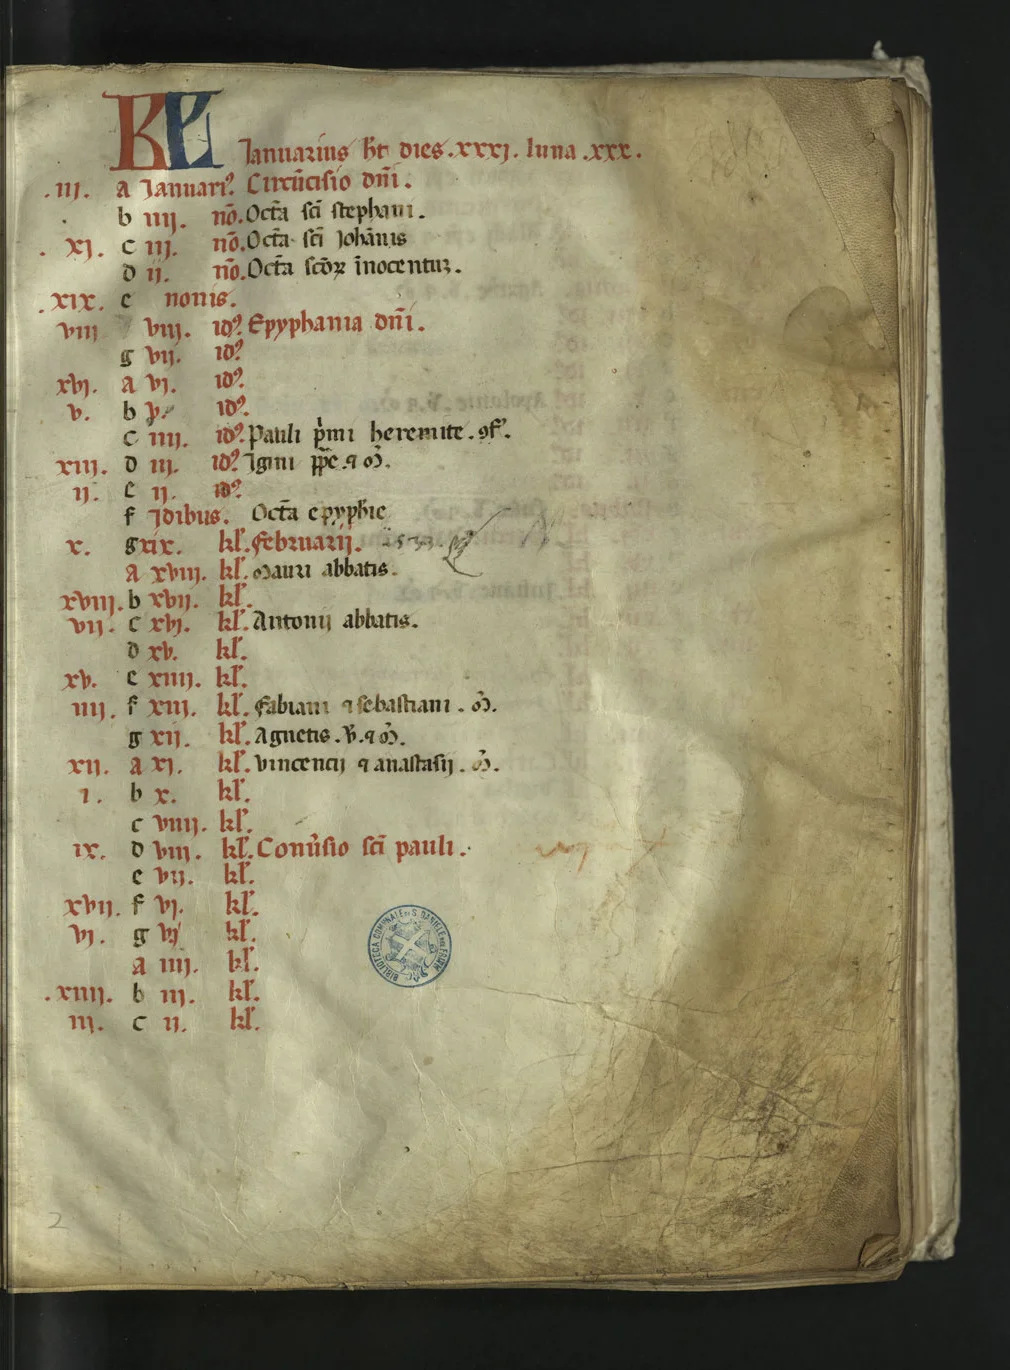 KL Ianuarius ht dies .xxxj. luna .xxx.
.iij. a Ianuarꝰ Circūcisio dn̄i.
b iiij. nō. Octā scī stephani.
xj. c iij. nō. Octā scī Johānis
d ij. nō. Octā scōꝝ īnocentuꝫ.
.xix. e nonis.
viij viij. idꝰ Epyphania dn̄i.
g vij. idꝰ
xvj. a vj. idꝰ
v. b v. idꝰ
c iiij. idꝰ Pauli pͥmi heremite . ꝯf᷎.
xiij. d iij. idꝰ Igini pp̄e. ⁊ m̄.
ij. e ij. idꝰ
f Idibus. Octā epyphīe
x. g xix. kl̓. februarij.
a xviij. kl̓. Mauri abbatis.
xviij. b xvij. kl̓.
vij. c xvj. kl̓. Antonij abbatis.
d xv. kl̓.
xv. e xiiij. kl̓.
iiij. f xiij. kl̓. Fabiani ⁊ sebastiani . m̄.
g xij. kl̓. Agnetis . v̄. ⁊ m̄.
xij. a xj. kl̓. vincencij ⁊ anastasij . m̄.
i. b x. kl̓.
c viiij. kl̓.
ix. d viij. kl̓. Conu̓sio scī pauli.
e vij. kl̓.
xvij. f vj. kl̓.
vj. g kl̓.
a iiij. kl̓.
.xiiij. b iij. kl̓.
iij. c ij. kl̓.
BIBLIOTECA COMUNALE DI S. DANIELE DEL FRIULI
2